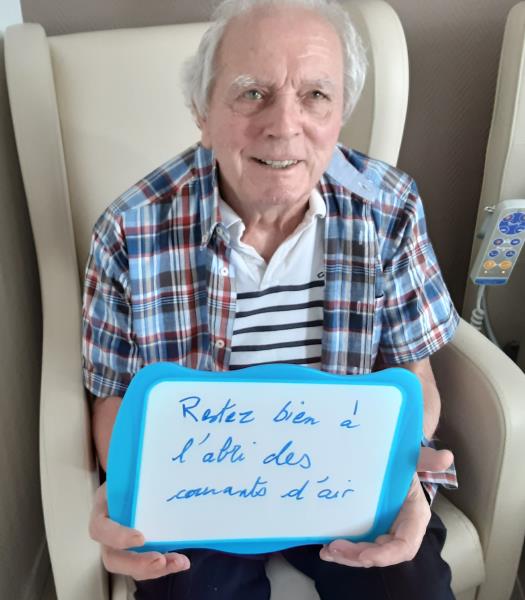 Restez bien à
l'abri des
courants d'air